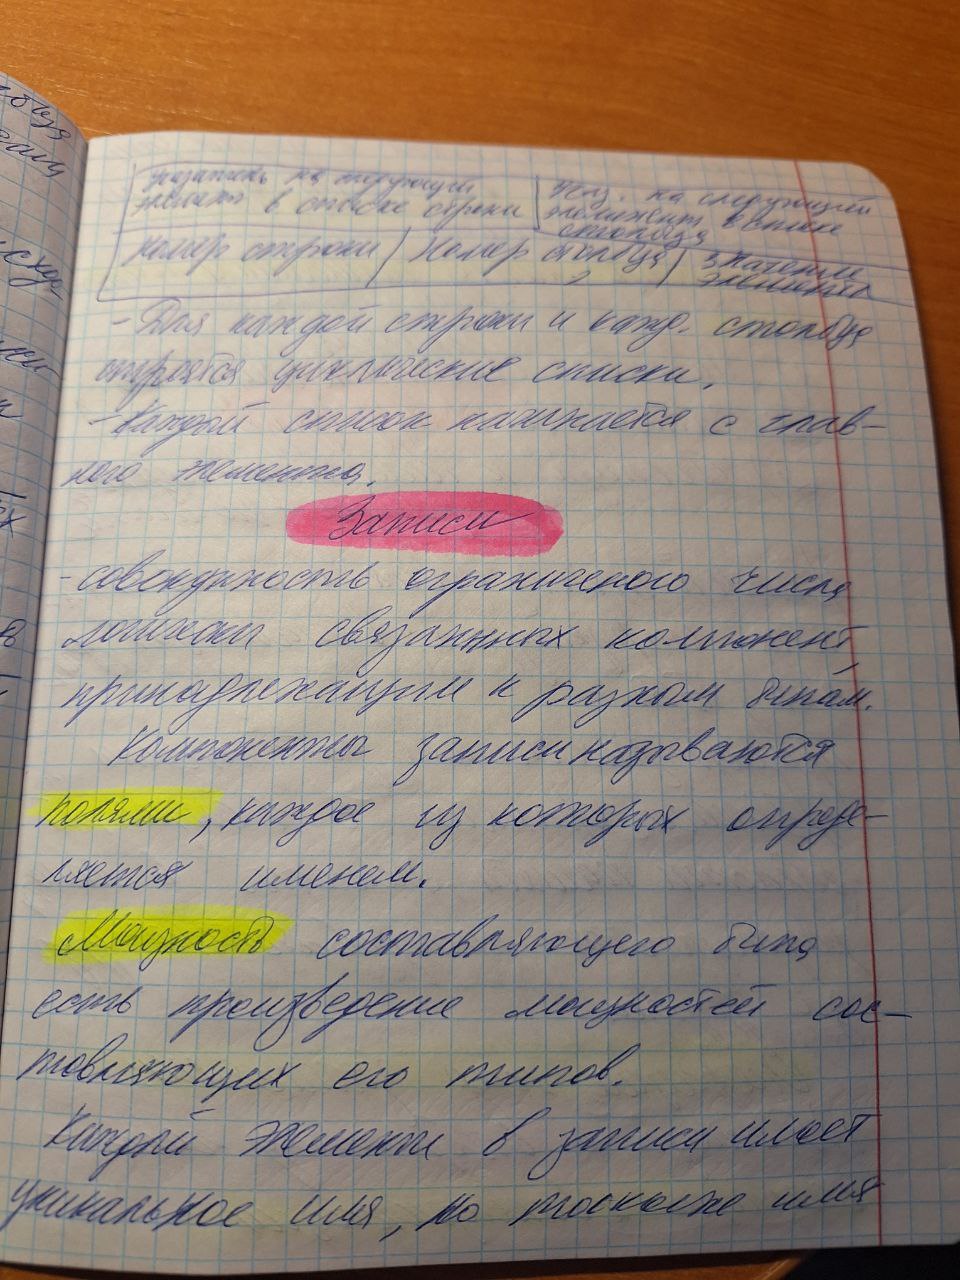 указатель на следующий
элемент в списке строки
Указ. на следующий
элемент в списке
столбца
Номер строки
Номер столбца
Значение
элемента
- Для каждой строки и кажд. столбца
строятся циклические списки.
- Каждый список начинается с глав-
ного элемента.
Записи
- совокупность ограниченого числа
логически связанных компонент,
принадлежащим к разным типам.
Компоненты записи называются
полями, каждое из которых опреде-
ляется именем.
Мощность составляющего типа
есть произведение мощностей сос-
тавляющих его типов.
Каждый элемент в записи имеет
уникальное имя, но такое же имя